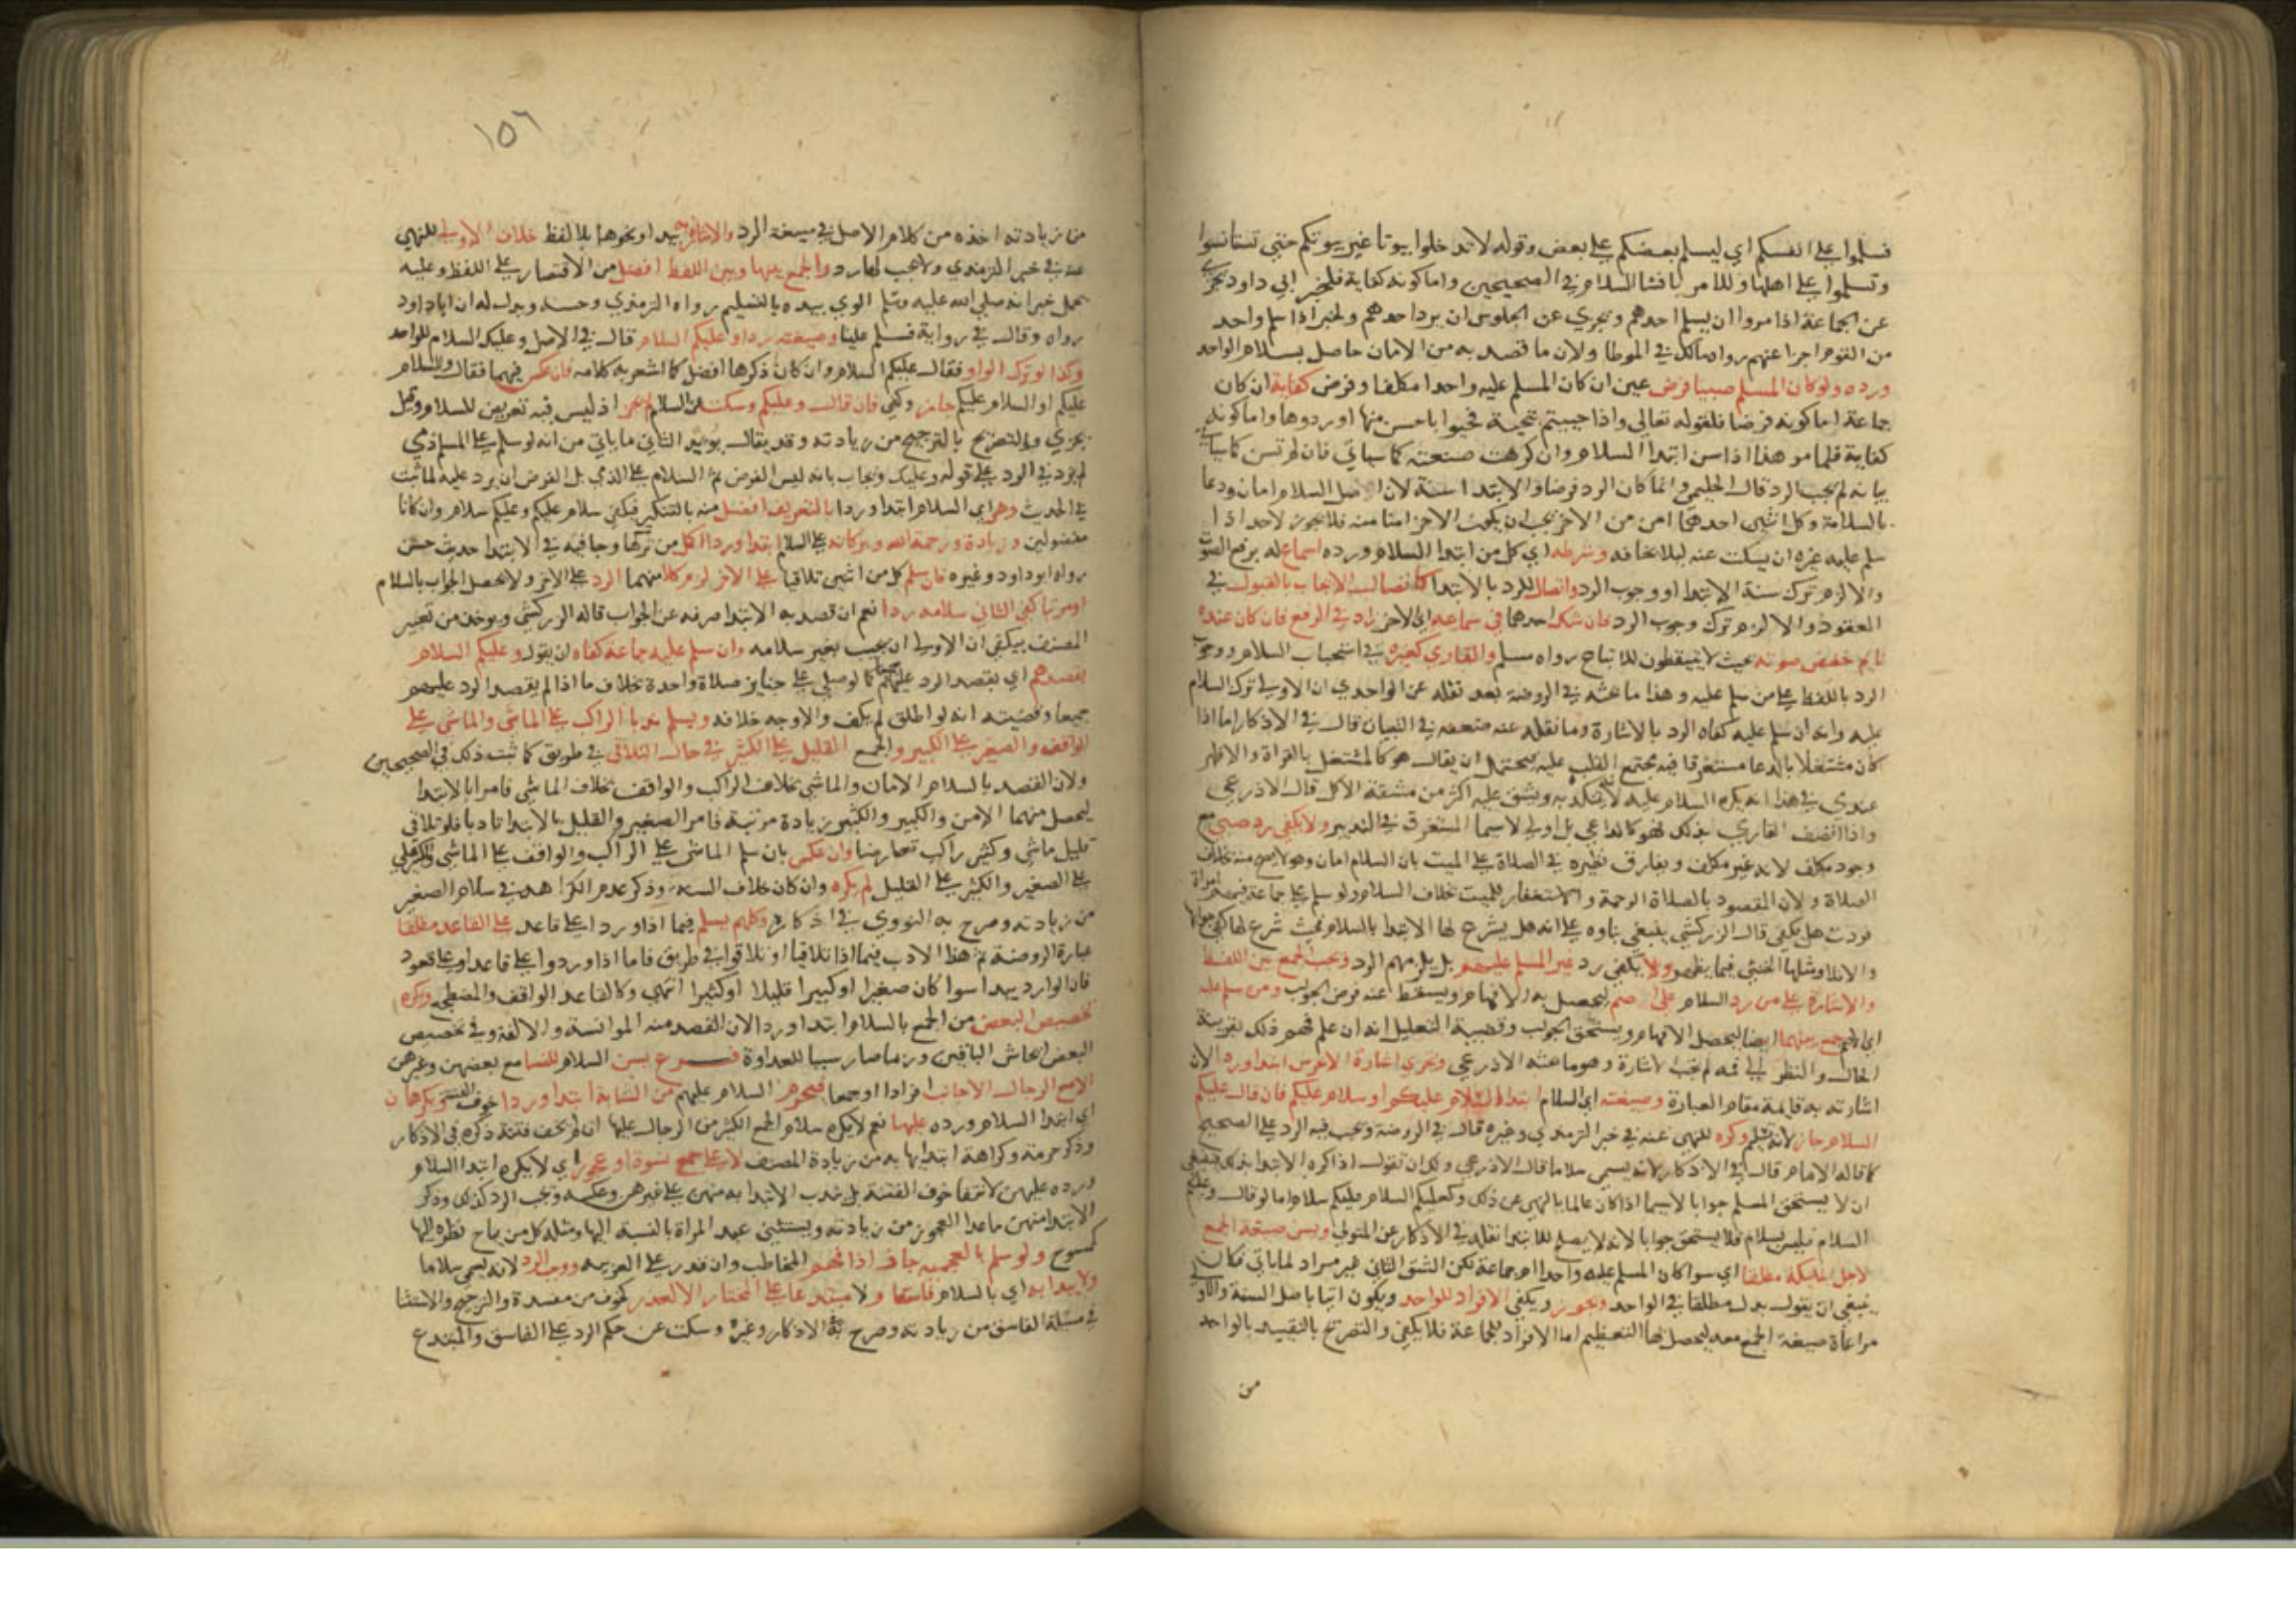 فسلموا على انفسكم اي ليسلم بعضكم على بعض وقوله لا تدخلوا بيوتا غير بيوتكم حتى تستانسوا
وتسلموا على اهلها وللامر بافشا السلام في الصحيحين واما كونه كفاية فلخبر ابي داود يجزي
عن الجماعة اذا مروا ان يسلم احدهم ويجزي عن الجلوس ان يرد احدهم ولخبر اذا سلم واحد
من القوم اجزا عنهم رواه مالك في الموطا ولان ما قصد به من الامان حاصل بسلام الواحد
ورده ولو كان المسلم صبيا فرض عين ان كان المسلم عليه واحدا مكلفا وفرض كفاية ان كان
جماعة اما كونه فرضا فلقوله تعالى واذا حييتم بتحية فحيوا باحسن منها او ردوها واما كونه
كفاية فلما مر هذا اذا سن ابتدا السلام وان كرهت صيغته كما سياتي فان لم تسن كما سياتي
بيانه لم يجب الرد قال الحليمي وانما كان الرد فرضا والابتدا سنة لان اصل السلام امان ودعا
بالسلامة وكل اثنين احدهما امن من الاخر يجب ان يكون الاخر امنا منه فلا يجوز لاحد اذا
سلم عليه غيره ان يسكت عنه ليلا يخافه وشرطه اي كل من ابتدا السلام ورده اسماع له برفع الصوت
والا لزم ترك سنة الابتدا او وجوب الرد واتصال للرد بالابتدا كاتصال الايجاب بالقبول في
العقود والا لزم ترك وجوب الرد فان شك احدهما في سماعه اي الاخر زاد في الرفع فان كان عنده
نايم خفض صوته بحيث لا يتيقظون للاتباع رواه مسلم والقاري كغيره في استحباب السلام ووجوب
الرد باللفظ على من سلم عليه وهذا ما بحثه في الروضة بعد نقله عن الواحدي ان الاولى ترك السلام
عليه وانه ان سلم عليه كفاه الرد بالاشارة وما نقله عنه ضعفه في التبيان قال في الاذكار اما اذا
كان مشتغلا بالدعا مستغرقا فيه مجتمع القلب عليه فيحتمل ان يقال هو كالمشتغل بالقراة والاظهر
عندي في هذا انه يكره السلام عليه لانه يتنكد به ويشق عليه اكثر من مشقة الاكل قال الاذرعي
واذا اتصف القاري بذلك فهو كالداعي بل اولى لا سيما المستغرق في التدبر ولا يكفي رد صبي مع
وجود مكلف لانه غير مكلف ويفارق نظيره في الصلاة على الميت بان السلام امان وهو لا يصح منه بخلاف
الصلاة ولان المقصود بالصلاة الرحمة والاستغفار للميت بخلاف السلام ولو سلم على جماعة فيهم امراة
فردت هل يكفي قال الزركشي ينبغي بناوه على انه هل يشرع لها الابتدا بالسلام فحيث شرع لها كفى جوابها
والا فلا ومثلها الخنثى فيما يظهر ولا يكفي رد غير المسلم عليهم بل يلزمهم الرد ويجب الجمع بين اللفظ
والاشارة على من رد السلام على اصم ليحصل به الافهام ويسقط عنه فرض الجواب ومن سلم عليه
اي الاصم جمع بينهما ايضا ليحصل الافهام ويستحق الجواب وقضية التعليل انه ان علم فهم ذلك بقرينة
الحال والنظر الى فمه لم تجب الاشارة وهو ما بحثه الاذرعي وتجزي اشارة الاخرس ابتدا وردا لان
اشارته به قايمة مقام العبارة وصيغته اي السلام ابتدا السلام عليكم او سلام عليكم فان قال عليكم
السلام جاز لانه تسليم وكره للنهي عنه في خبر الترمذي وغيره قال في الروضة ويجب فيه الرد على الصحيح
كما قاله الامام قال في الاذكار لانه يسمى سلاما قال الاذرعي ولك ان تقول اذا كره الابتدا بذلك فينبغي
ان لا يستحق المسلم جوابا لا سيما اذا كان عالما بالنهي عن ذلك وكعليكم السلام عليكم سلام اما لو قال وعليكم
السلام فليس بسلام فلا يستحق جوابا لانه لا يصلح للابتدا نقله في الاذكار عن المتولي ويسن صيغة الجمع
لاجل الملايكة مطلقا اي سوا كان المسلم عليه واحدا ام جماعة لكن الشق الثاني غير مراد لما ياتي فكان
ينبغي ان يقول بدل مطلقا في الواحد ويجوز ويكفي الافراد للواحد ويكون اتيا باصل السنة والاولى
مراعاة صيغة الجمع معه ليحصل بها التعظيم اما الافراد للجماعة فلا يكفي والتصريح بالتقييد بالواحد
من
١٥٦
من زيادته اخذه من كلام الاصل في صيغة الرد والاشارة به بيد او نحوها بلا لفظ خلاف الاولى للنهي
عنه في خبر الترمذي ولا يجب لها رد والجمع بينها وبين اللفظ افضل من الاقتصار على اللفظ وعليه
يحمل خبر انه صلى الله عليه وسلم الوى بيده بالتسليم رواه الترمذي وحسنه ويدل له ان ابا داود
رواه وقال في رواية فسلم علينا وصيغته ردا وعليكم السلام قال في الاصل وعليك السلام للواحد
وكذا لو ترك الواو فقال عليكم السلام وان كان ذكرها افضل كما اشعر به كلامه فان عكس فيهما فقال والسلام
عليكم او السلام عليكم جاز وكفى فان قال وعليكم وسكت عن السلام لم يجز اذ ليس فيه تعريض للسلام وقيل
يجزي والتصريح بالترجيح من زيادته وقد يقال يويد الثاني ما ياتي من انه لو سلم على المسلم ذمي
لم يزد في الرد على قوله وعليك ويجاب بانه ليس الغرض ثم السلام على الذمي بل الغرض ان يرد عليه لما ثبت
في الحديث وهو اي السلام ابتدا وردا بالتعريف افضل منه بالتنكير فيكفي سلام عليكم وعليكم سلام وان كانا
مفضولين وزيادة ورحمة الله وبركاته على السلام ابتدا وردا اكمل من تركها وجا فيه في الابتدا حديث حسن
رواه ابو داود وغيره فان سلم كل من اثنين تلاقيا على الاخر لزم كلا منهما الرد على الاخر ولا يحصل الجواب بالسلام
او مرتبا كفى الثاني سلامه ردا نعم ان قصد به الابتدا صرفه عن الجواب قاله الزركشي ويوخذ من تعبير
المصنف بيكفي ان الاولى ان يجيب بغير سلامه وان سلم عليه جماعة كفاه ان يقول وعليكم السلام
بقصدهم اي بقصد الرد عليهم جميعا كما لو صلى على جنايز صلاة واحدة بخلاف ما اذا لم يقصد الرد عليهم
جميعا وقضيته انه لو اطلق لم يكف والاوجه خلافه ويسلم ندبا الراكب على الماشي والماشي على
الواقف والصغير على الكبير والجمع القليل على الكثير في حال التلاقي في طريق كما ثبت ذلك في الصحيحين
ولان القصد بالسلام الامان والماشي بخلاف الراكب والواقف بخلاف الماشي فامرا بالابتدا
ليحصل منهما الامن والكبير والكثير زيادة مرتبة فامر الصغير والقليل بالابتدا تادبا فلو تلاقى
قليل ماش وكثير راكب تعارضا وان عكس بان سلم الماشي على الراكب والواقف على الماشي والكبير
على الصغير والكثير على القليل لم يكره وان كان خلاف السنة وذكر عدم الكراهة في سلام الصغير
من زيادته وصرح به النووي في اذكاره وكلهم يسلم فيما اذا ورد على قاعد على القاعد مطلقا
عبارة الروضة ثم هذا الادب فيما اذا تلاقيا او تلاقوا في طريق فاما اذا وردوا على قاعد او على قعود
فان الوارد يبدا سوا كان صغيرا او كبيرا قليلا او كثيرا انتهى وكالقاعد الواقف والمضطجع ويكره
تخصيص البعض من الجمع بالسلام ابتدا وردا لان القصد منه الموانسة والالفة وفي تخصيص
البعض ايحاش الباقين وربما صار سببا للعداوة فرع يسن السلام للنسا مع بعضهن وغيرهن
لا مع الرجال الاجانب افرادا او جمعا فيحرم السلام عليهم من الشابة ابتدا وردا خوف الفتنة ويكرهان
اي ابتدا السلام ورده عليها نعم لا يكره سلام الجمع الكثير من الرجال عليها ان لم يخف فتنة ذكره في الاذكار
وذكر حرمة وكراهة ابتدايها به من زيادة المصنف لا على جمع نسوة او عجوز اي لا يكره ابتدا السلام
ورده عليهن لانتفا خوف الفتنة بل يندب الابتدا به منهن على غيرهن وعكسه ويجب الرد كذلك وذكر
الابتدا منهن ما عدا العجوز من زيادته ويستثنى عبد المراة بالنسبة اليها ومثله كل من يباح نظره اليها
كممسوح ولو سلم بالعجمية جاز اذا فهم المخاطب وان قدر على العربية ووجب الرد لانه يسمى سلاما
ولا يبدا به اي بالسلام فاسقا ولا مبتدعا على المختار الا لعذر كخوف من مفسدة والترجيح والاستثنا
في مسئلة الفاسق من زيادته وصرح به في الاذكار وغيره وسكت عن حكم الرد على الفاسق والمبتدع